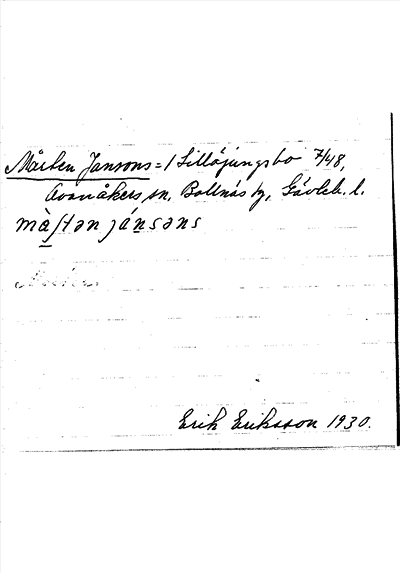 Mårten Jansons = / Lillåjungsbo 7/48,
Ovanåkers sn, Bollnäs tg, Gävleb. l.
mà̱ʃtən já̱nsəns
Erik Eriksson 1930.